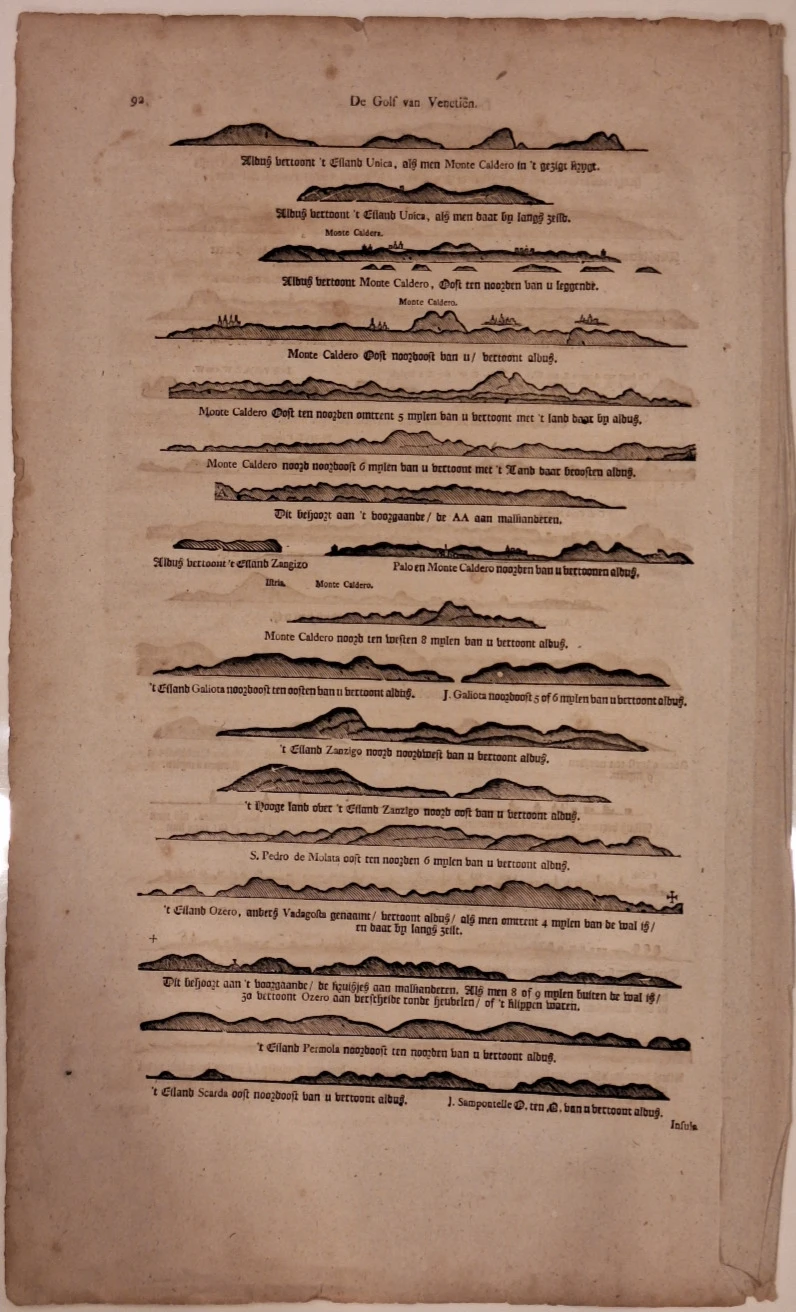 92
De Golf van Venetiën.
Aldus vertoont 't Eiland Unica, als men Monte Caldero in 't gezigt krygt.
Aldus vertoont 't Eiland Unica, als men daar by langs zeild.
Monte Caldera.
Aldus vertoont Monte Caldero, Oost ten noorden van u leggende.
Monte Caldero.
Monte Caldero Oost noordoost van u / vertoont aldus.
Monte Caldero Oost ten noorden omtrent 5 mylen van u vertoont met 't land daar by aldus.
Monte Caldero noord noordoost 6 mylen van u vertoont met 't Land daar beoosten aldus.
Dit behoort aan 't voorgaande / de AA aan malkanderen.
Aldus vertoont 't Eiland Zangizo
Palo en Monte Caldero noorden van u vertoonen aldus.
Istria. Monte Caldero.
Monte Caldero noord ten westen 8 mylen van u vertoont aldus.
't Eiland Galiota noordoost ten oosten van u vertoont aldus.
J. Galiota noordoost 5 of 6 mylen van u vertoont aldus.
't Eiland Zanzigo noord noordwest van u vertoont aldus.
't Hooge land over 't Eiland Zanzigo noord oost van u vertoont aldus.
S. Pedro de Molata oost ten noorden 6 mylen van u vertoont aldus.
't Eiland Ozero, anders Vadagosta genaamt / vertoont aldus / als men omtrent 4 mylen van de wal is /
en daar by langs zeilt.
Dit behoort aan 't voorgaande / de kruisjes aan malkanderen. Als men 8 of 9 mylen buiten de wal is /
zo vertoont Ozero aan verscheide ronde heubelen / of 't klippen waren.
't Eiland Permola noordoost ten noorden van u vertoont aldus.
't Eiland Scarda oost noordoost van u vertoont aldus.
J. Sampontelle O. ten N. van u vertoont aldus.
Insula